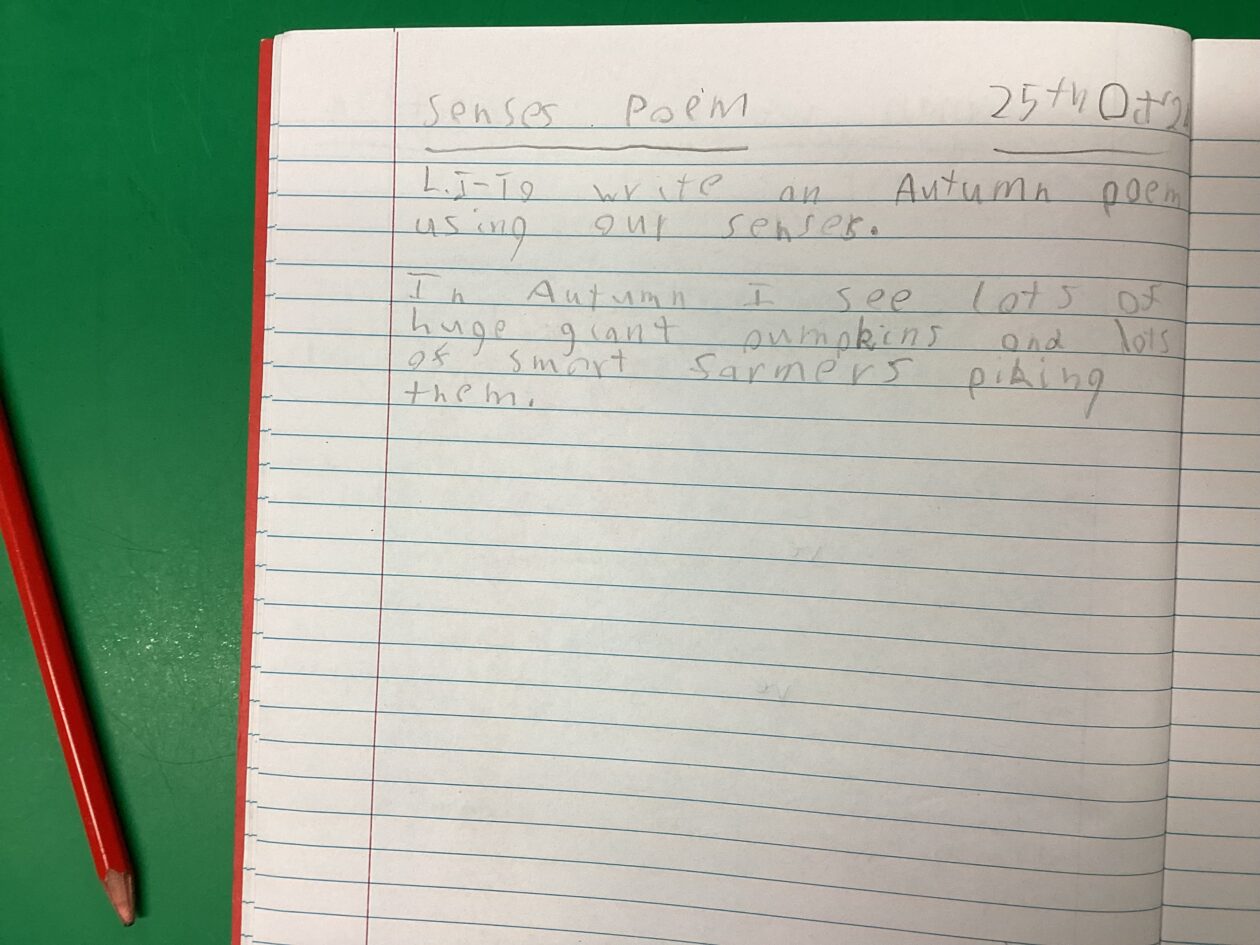 Senses Poem 25th Oct
L.I-To write an Autumn poem
using our senses.
In Autumn I see lots of
huge giant pumpkins and lots
of smart farmers piking
them.